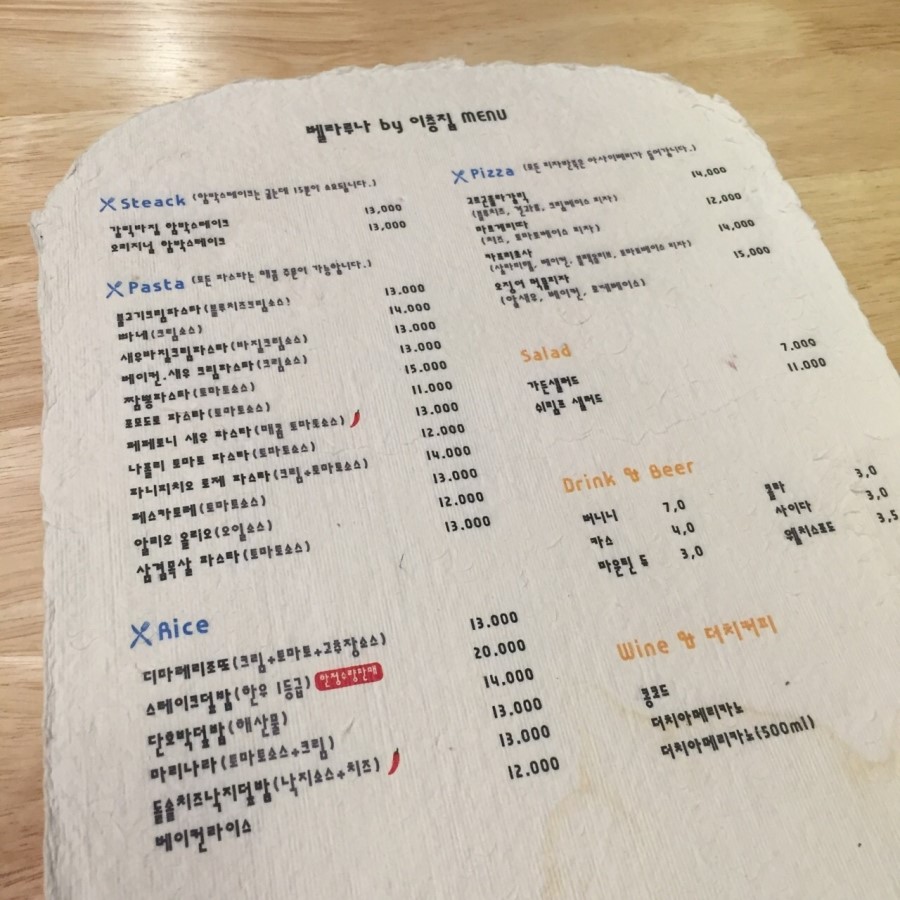 벨라루나 by 이층집 MENU
Steack (함박스테이크는 굽는데 15분이 소요됩니다.)
갈릭마징 함박스테이크 13,000
오리지널 함박스테이크 13,000
Pasta (모든 파스타는 매콤 주문이 가능합니다.)
불고기크림파스타(블루치즈크림소스) 13.000
빠네(크림소스) 14.000
새우바질크림파스타(바질크림소스) 13.000
베이컨.새우 크림파스타(크림소스) 13.000
짬뽕파스타(토마토소스) 15.000
포모도로 파스타(토마토소스) 11.000
페페로니 새우 파스타(매콤 토마토소스) 13.000
나폴리 토마토 파스타(토마토소스) 12.000
파니피치오 로제 파스타(크림+토마토소스) 14.000
페스카토레(토마토소스) 13.000
알리오 올리오(오일소스) 12.000
삼겹목살 파스타(토마토소스) 13.000
Rice
디마레리조또(크림+토마토+고추장소스) 13.000
스테이크덮밥(한우 1등급) 한정수량판매 20.000
단호박덮밥(해산물) 14.000
마리나라(토마토소스+크림) 13.000
돌솥치즈낙지덮밥(낙지소스+치즈) 13.000
베이컨라이스 12.000
Pizza
14,000
고르곤졸라갈릭
(블루치즈, 견과류, 크림베이스 피자)
12,000
마르게리따
(치즈, 토마토베이스 피자)
14,000
카프리쵸사
(살라미햄, 베이컨, 블랙올리브, 토마토베이스 피자)
15,000
오징어 먹물피자
Salad
가든샐러드 7.000
쉬림프 샐러드 11.000
Drink & Beer
버니니 7,0
카스 4,0
마운틴 듀 3,0
콜라 3,0
사이다 3,0
웰치스포도 3,5
Wine & 더치커피
콩코드
더치아메리카노
더치아메리카노(500ml)